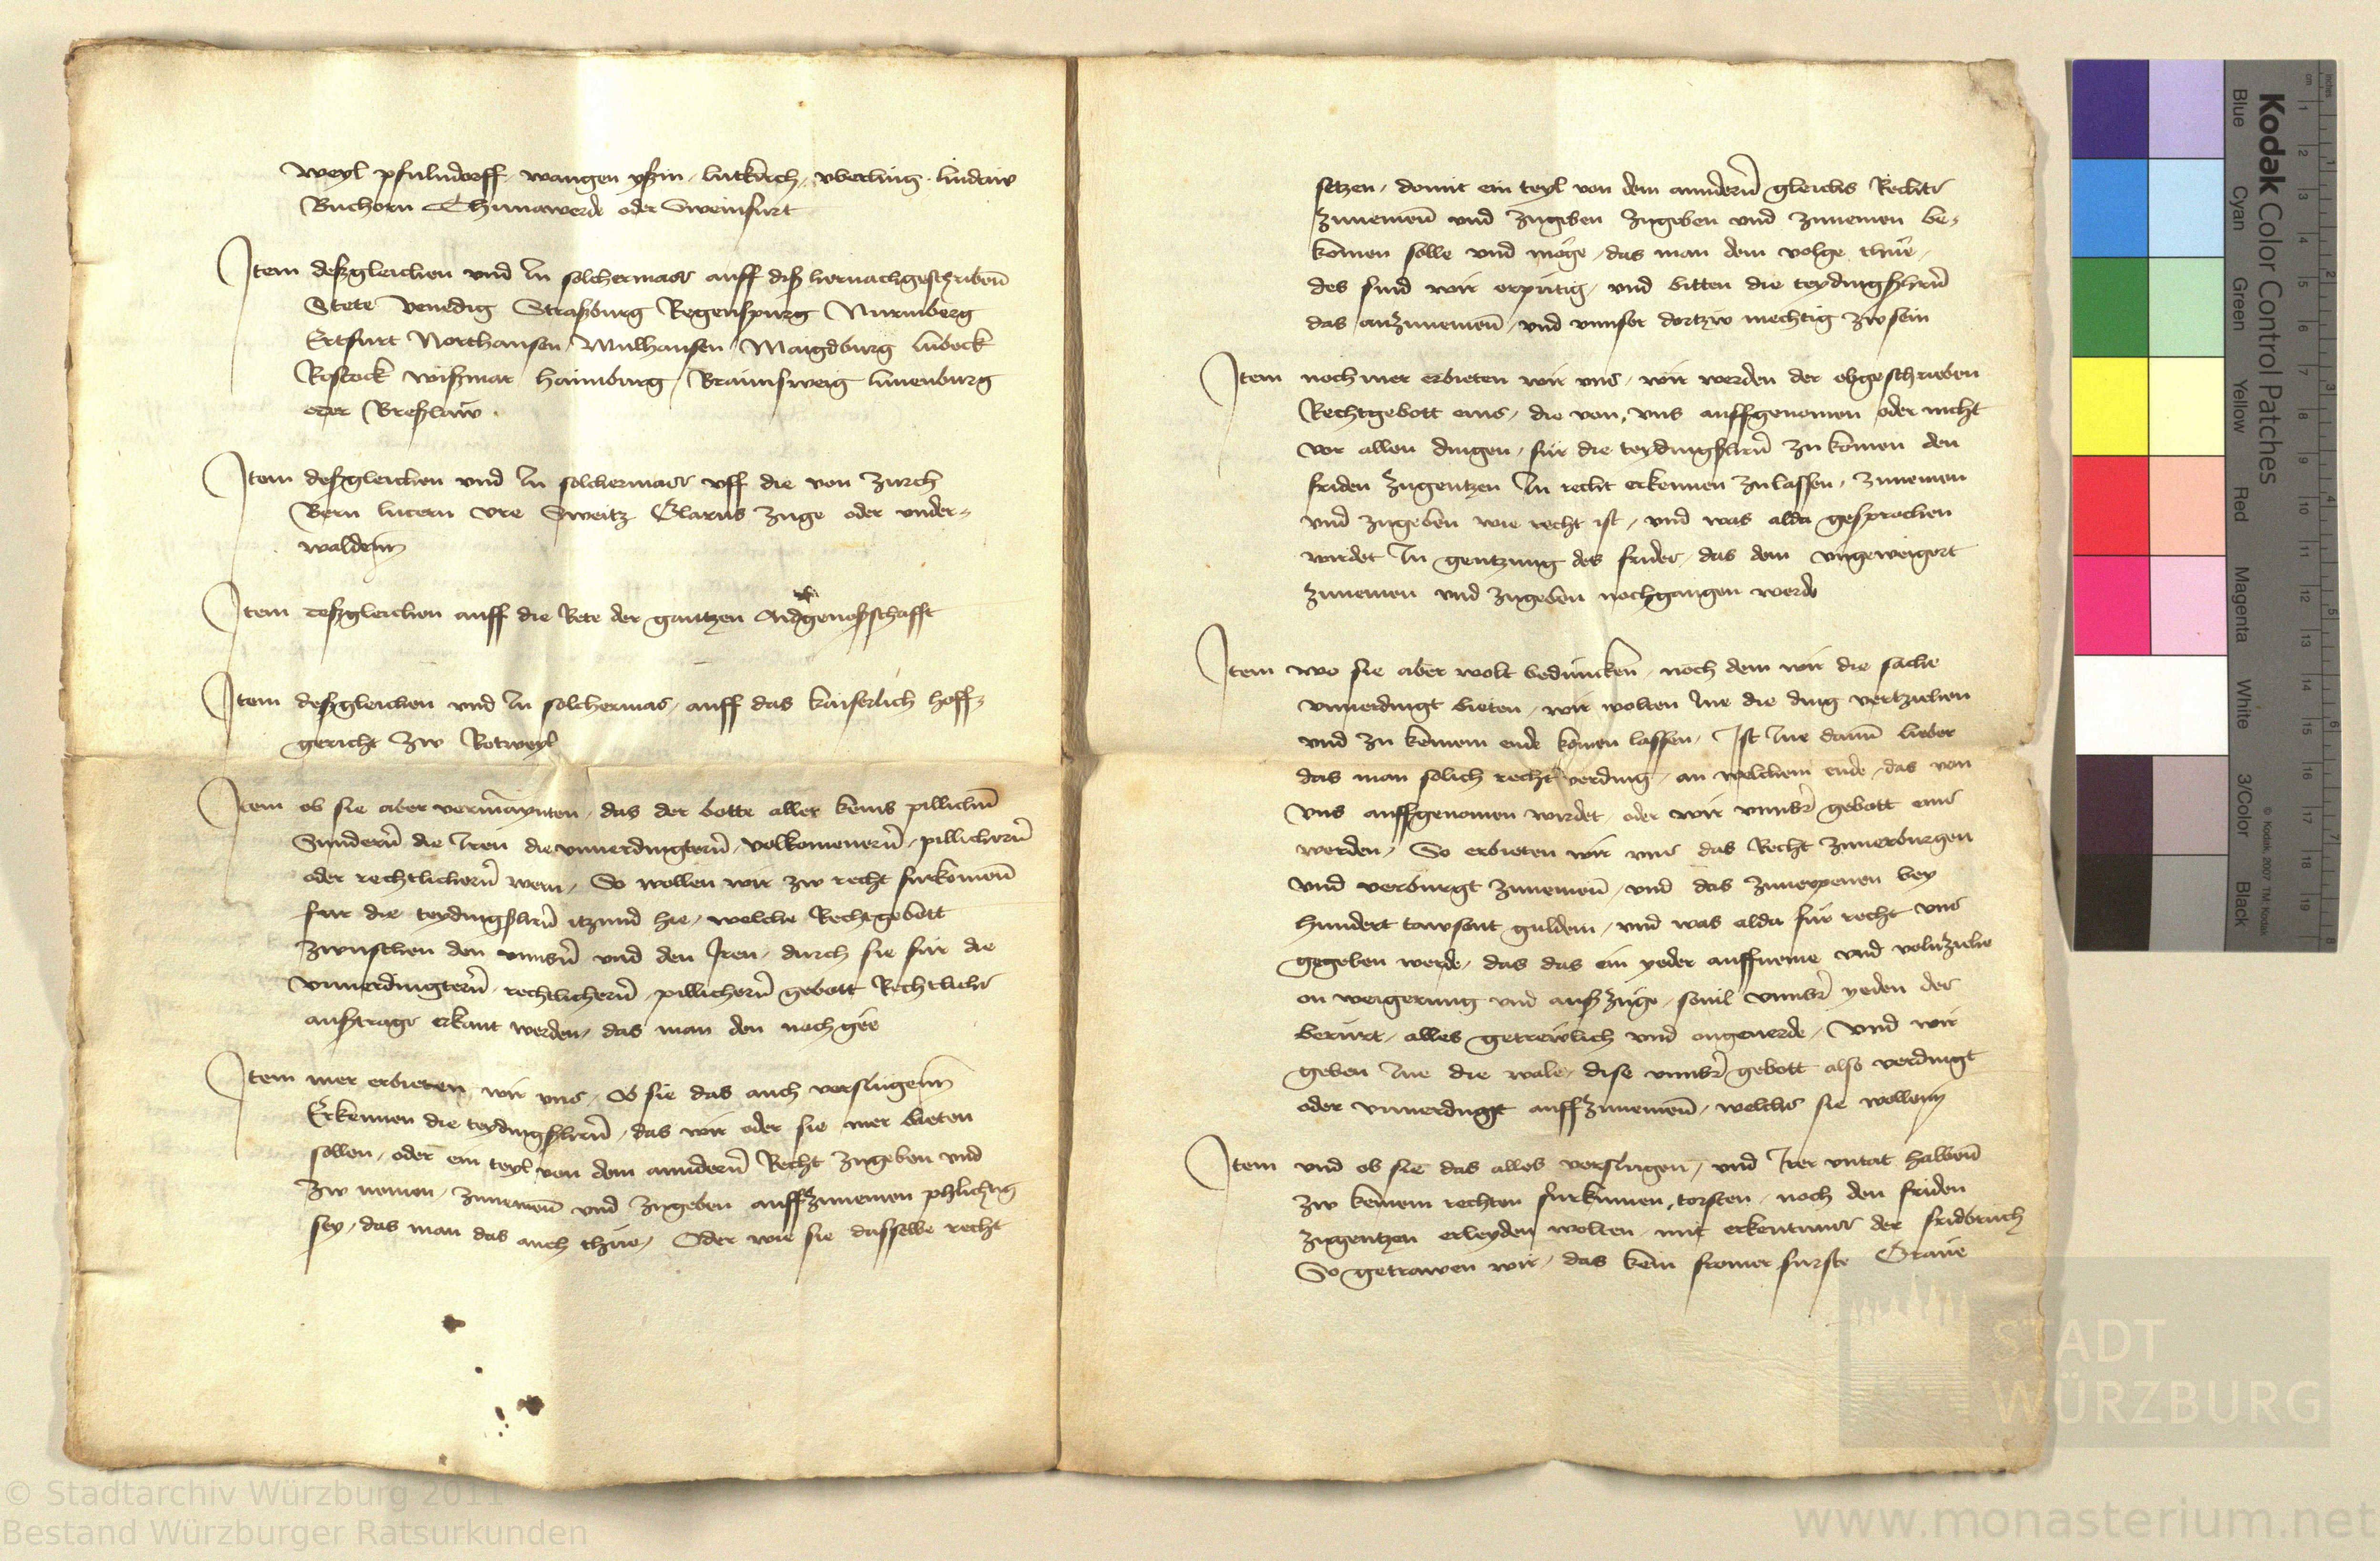 weyl pfulndorff wangen yßin lutkirch vberling lindaw
Buchorn Thunawerde oder Sweinfurt
Item deßgleichen vnd In solchermass auff diß hernachgeschribenn
Stete Venedig Straßburg Regenspurg Nurmberg
Ertfurt Northausen Mulhausen Maigdburg lubeck
Rostock wißmar Haimburg Braunsweig lunenburg
oder Breßlaw
Item deßgleichen vnd In solchermass vff die von Zurch
Bern lucern vre Sweitz Glarus Zuge oder vnder-
waldenn
Item deßgleichen auff die Rete der gantzen Aidgenoßschafft
Item deßgleichen vnd In solchermas auff das kaiserlich hoff-
gericht zw Rotweyl
Item ob sie aber vermaynten das der botte aller keins pillichn
Sundern die Iren die vnuerdingtern volkomenern pillichern
oder rechtlichern wern So wollen wir zw recht furkomenn
fur die teydingßhern itzund hie welche Rechtgebott
zwuschen den vnnsern vnd den Iren durch sie fur die
vnuerdingtern rechtlichern pillichern gebott Rechtlichs
außtrags erkant werden das man den nachgee
Item mer erbieten wir vns Ob sie das auch verslugenn
Erkennen die teydingßhern das wir oder sie mer bieten
sollen oder ein teyl von dem anndern Recht zugeben vnd
zw nemen zunemen vnd zugeben auffzunemen phlichtig
sey das man das auch thue Oder wie sie dasselbe recht
setzen domit ein teyl von dem anndern gleichs Rechts
zunemenn vnd zugeben zugeben vnd zunemen be-
komen solle vnd moge das man dem volge thue
des sind wir erputig vnd bitten die teydingßhern
das anzunemenn vnd vnnser dortzw mechtig zw sein
Item noch mer erbieten wir vns wir werden der obgeschrieben
Rechtgebott eins die von vns auffgenomen oder nicht
vor allen dingen fur die teydingßhern zu komen den
friden zugentzen In recht erkennen zulassen zunemen
vnd zugeben wie recht ist vnd was alda gesprochen
wirdet In gentzung des frides das dem vngeweigert
zunemen vnd zugeben nochgangen werde
Item wo sie aber wolt beduncken noch dem wir die sache
vnuerdingt bieten wir wolten Ine die ding vertziehen
vnd zu keinem ende komen lassen Ist Ine dann lieber
das man solich recht verding an welchem ende das von
vns auffgenomen wirdet oder wir vnnser gebott eins
werden So erbieten wir vns das Recht zuuerburgen
vnd verburgt zunemenn vnd das zuuerpenen bey
hundert tawsent gulden vnd was alda fur recht vns
gegeben werde das das ein yeder auffneme vnd volnziehe
on weigerung vnd außzuge souil vnnser yeden des
berurt alles getrewlich vnd ongeuerde Vnd wir
geben Ine die wale dise vnnser gebott also verdingt
oder vnuerdingt auffzunemenn welchs sie wollenn
Item vnd ob sie das alles verslugen vnd Irer vntat halbenn
zw keinem rechten furkumen torsten noch den friden
zugentzen erleyden wolten mit erkentnus der fridbruch
So getrawen wir das kein fromer furste Graue
Kodak Color Control Patches
Blue Cyan Green Yellow Red Magenta White 3/Color Black
© Kodak 2007 TM: Kodak
STADT
WÜRZBURG
© Stadtarchiv Würzburg 2011
Bestand Würzburger Ratsurkunden
www.monasterium.net